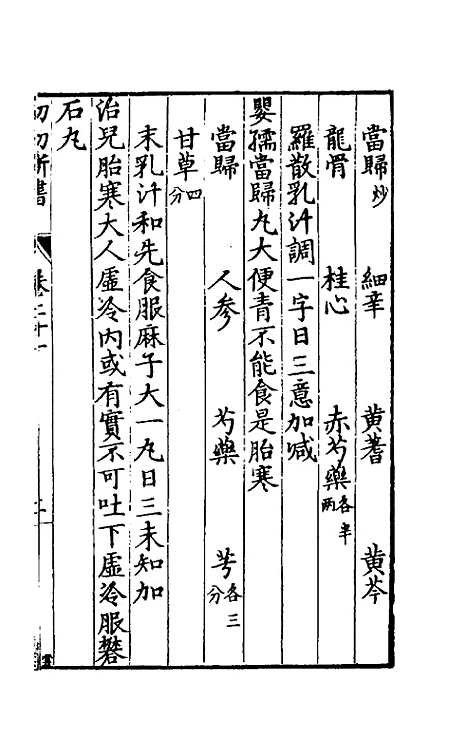 當歸炒 細辛 黄蓍 黄芩
龍骨 桂心 赤芍藥各半兩
羅散乳汁調一字日三意加减
嬰孺當歸丸大便青不能食是胎寒
當歸 人參 芍藥 芎各三分
甘草四分
末乳汁和先食服麻子大一丸日三未知加
治兒胎寒大人虚冷内或有實不可吐下虚冷服礬
石丸
幼幼新書 卷二十一